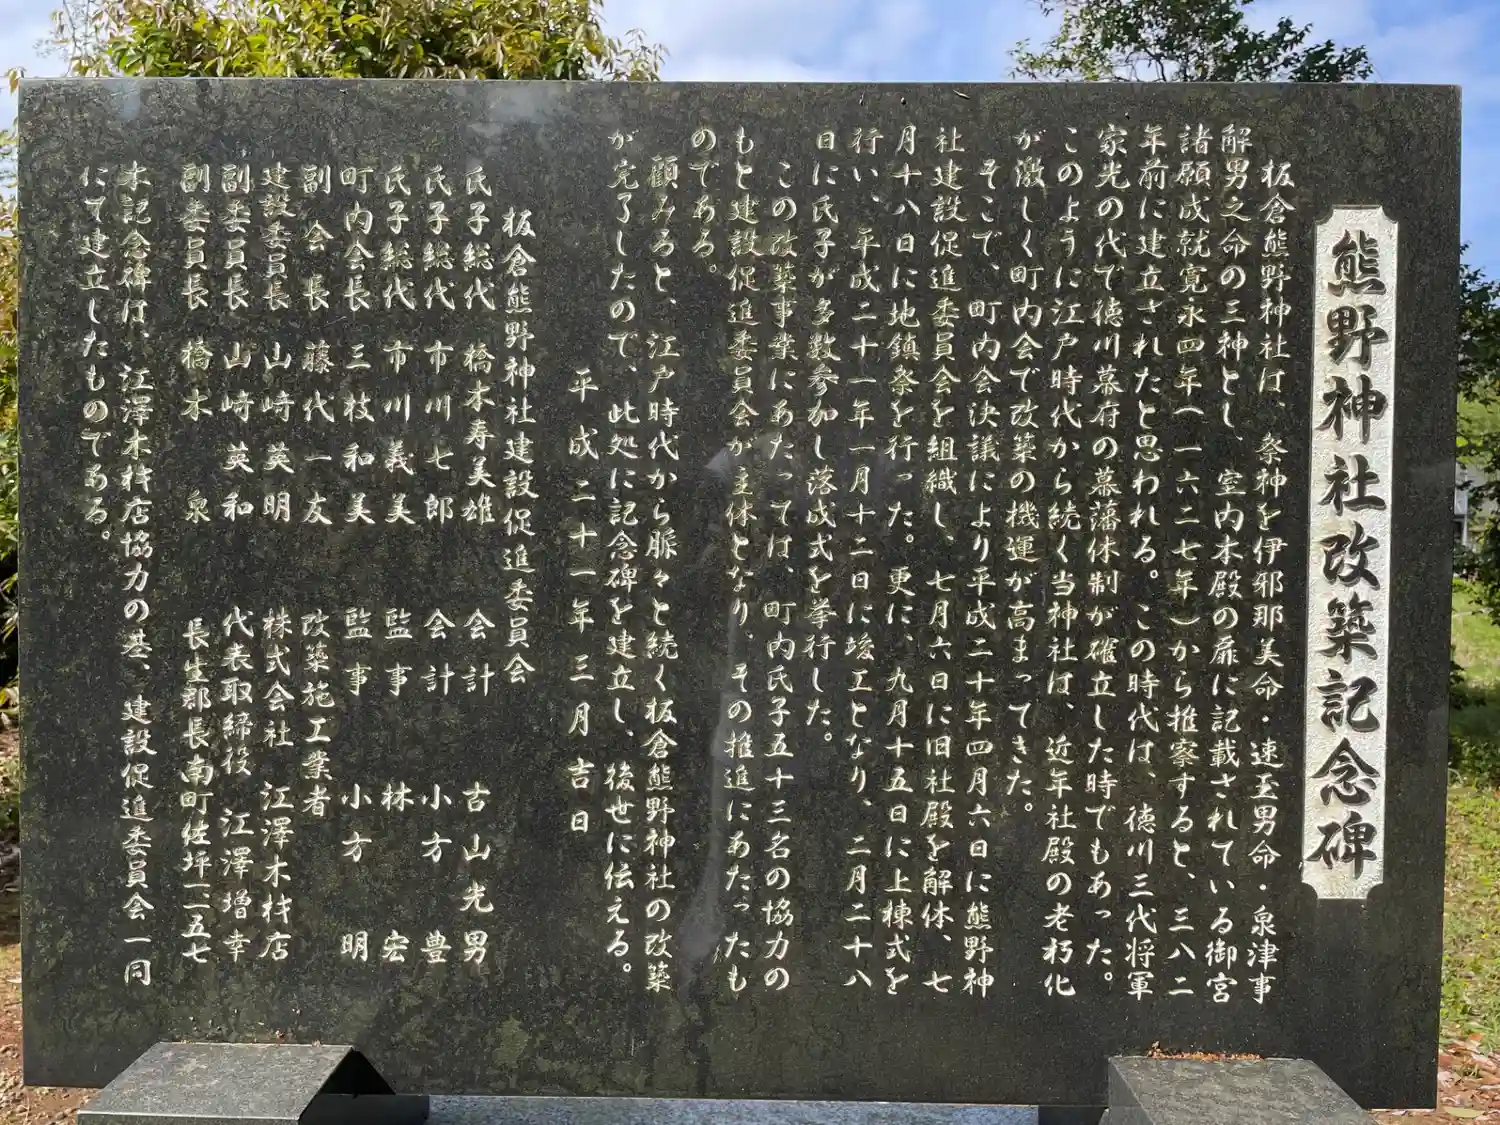 熊野神社改築記念碑
板倉熊野神社は、祭神を伊邪那美命・速玉男命・泉津事
解男之命の三神とし、室内本殿の扉に記載されている御宮
諸願成就寛永四年(一六二七年)から推察すると、三八二
年前に建立されたと思われる。この時代は、徳川三代将軍
家光の代で徳川幕府の幕藩体制が確立した時でもあった。
このように江戸時代から続く当神社は、近年社殿の老朽化
が激しく町内会で改築の機運が高まってきた。
そこで、町内会決議により平成二十年四月六日に熊野神
社建設促進委員会を組織し、七月六日に旧社殿を解体、七
月十八日に地鎮祭を行った。更に、九月十五日に上棟式を
行い、平成二十一年一月十二日に竣工となり、二月二十八
日に氏子が多数参加し落成式を挙行した。
この改築事業にあたっては、町内氏子五十三名の協力の
もと建設促進委員会が主体となり、その推進にあたったも
のである。
顧みると、江戸時代から脈々と続く板倉熊野神社の改築
が完了したので、此処に記念碑を建立し、後世に伝える。
平成二十一年三月吉日
板倉熊野神社建設促進委員会
氏子総代 橋本寿美雄 会計 古山光男
氏子総代 市川七郎 会計 小方豊
氏子総代 市川義美 監事 林宏
町内会長 三枝和美 監事 小方明
副会長 藤代一友 改築施工業者
建設委員長 山﨑英明 株式会社 江澤木材店
副委員長 山﨑英和 代表取締役 江澤増幸
副委員長 橋本泉 長生郡長南町佐坪一一五七
本記念碑は、江澤木材店協力の基、建設促進委員会一同
にて建立したものである。